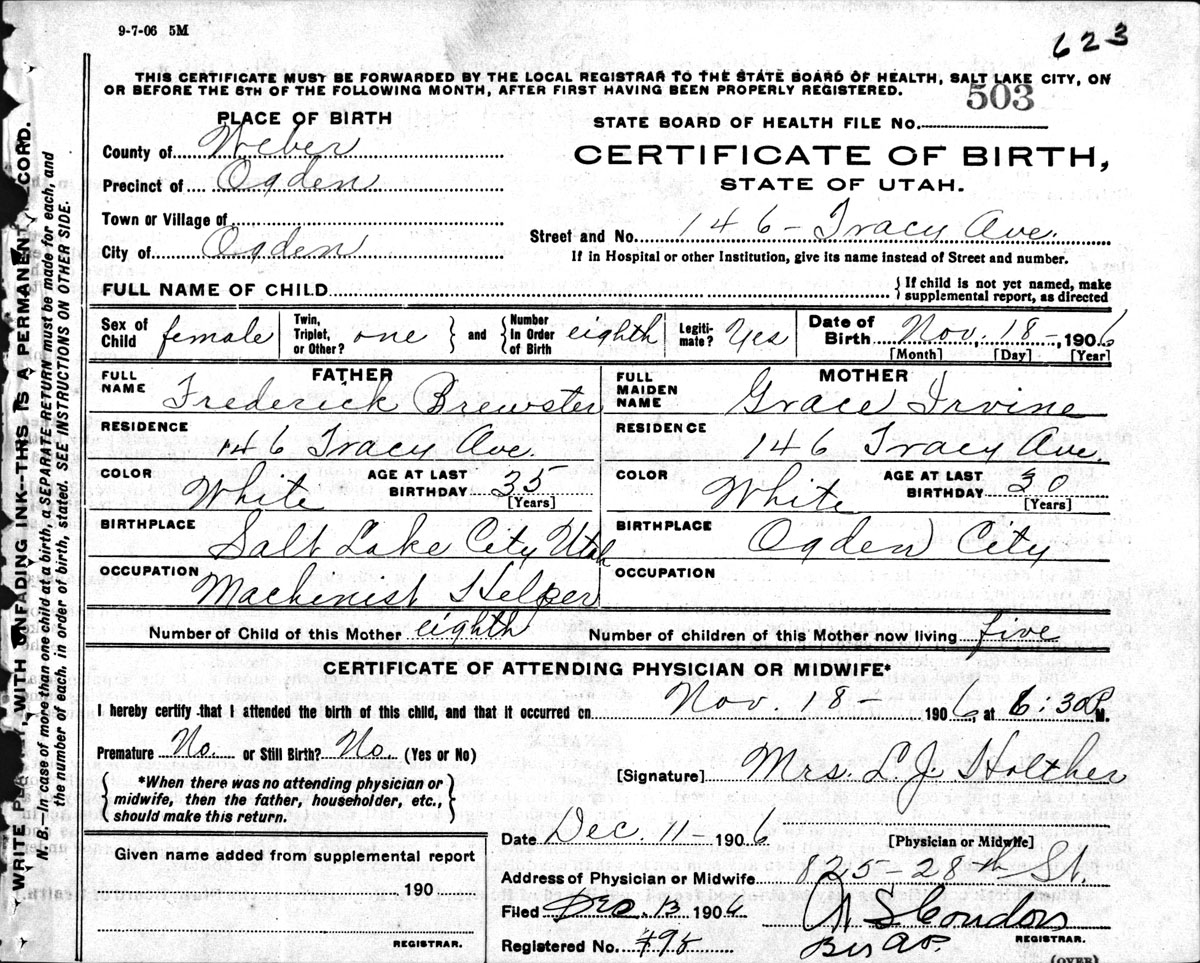 9-7-06 5M
623
THIS CERTIFICATE MUST BE FORWARDED BY THE LOCAL REGISTRAR TO THE STATE BOARD OF HEALTH, SALT LAKE CITY, ON
OR BEFORE THE 5TH OF THE FOLLOWING MONTH, AFTER FIRST HAVING BEEN PROPERLY REGISTERED.
503
PLACE OF BIRTH
STATE BOARD OF HEALTH FILE No.
County of Weber
CERTIFICATE OF BIRTH,
Precinct of Ogden
STATE OF UTAH.
Town or Village of
Street and No. 146 - Tracy Ave.
City of Ogden
If in Hospital or other Institution, give its name instead of Street and number.
FULL NAME OF CHILD
{ If child is not yet named, make
supplemental report, as directed
Sex of Child female
Twin, Triplet, or Other? one } and { Number in Order of Birth eighth
Legiti-mate? Yes
Date of Birth Nov. 18 -, 1906
[Month] [Day] [Year]
FATHER
FULL NAME Frederick Brewster
MOTHER
FULL MAIDEN NAME Grace Irvine
RESIDENCE 146 Tracy Ave.
RESIDENCE 146 Tracy Ave.
COLOR White AGE AT LAST BIRTHDAY 35 [Years]
COLOR White AGE AT LAST BIRTHDAY 30 [Years]
BIRTHPLACE Salt Lake City Utah
BIRTHPLACE Ogden City
OCCUPATION Machinist Helper
OCCUPATION
Number of Child of this Mother eighth Number of children of this Mother now living five
CERTIFICATE OF ATTENDING PHYSICIAN OR MIDWIFE*
I hereby certify that I attended the birth of this child, and that it occurred on Nov. 18 - 1906, at 6:30 P.M.
Premature No. or Still Birth? No. (Yes or No)
[Signature] Mrs. L. J. Holther
{ *When there was no attending physician or
midwife, then the father, householder, etc.,
should make this return. }
Date Dec. 11 - 1906 [Physician or Midwife]
Given name added from supplemental report
Address of Physician or Midwife 825 - 28th St.
190
Filed Dec 13 1906
REGISTRAR.
Registered No. 498
REGISTRAR.
(OVER)
WRITE PLAINLY, WITH UNFADING INK---THIS IS A PERMANENT RECORD.
N. B.—In case of more than one child at a birth, a SEPARATE RETURN must be made for each, and
the number of each, in order of birth, stated. SEE INSTRUCTIONS ON OTHER SIDE.